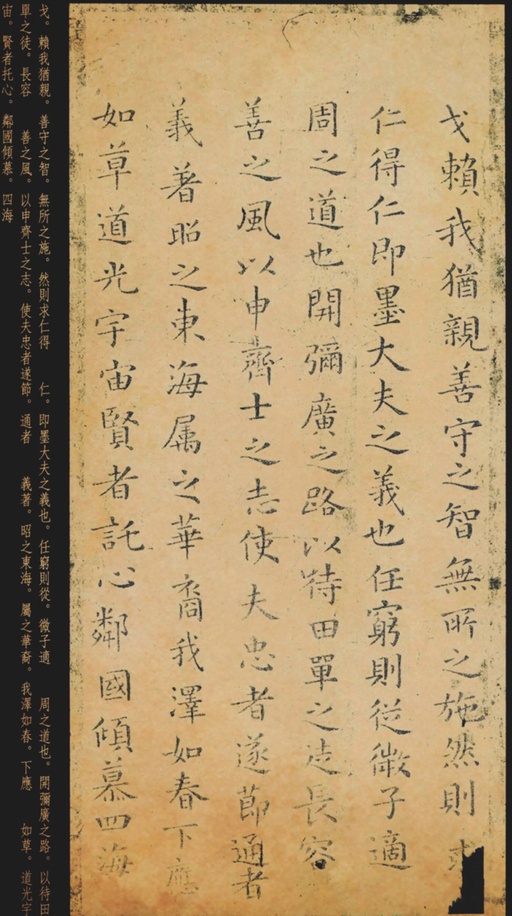 戈賴我猶親善守之智無所之施然則求
仁得仁即墨大夫之義也任窮則從微子適
周之道也開彌廣之路以待田單之徒長容
善之風以申齊士之志使夫忠者遂節通者
義著昭之東海属之華裔我澤如春下應
如草道光宇宙賢者託心鄰國傾慕四海
戈。賴我猶親。善守之智。無所之施。然則求仁得 仁。即墨大夫之義也。任窮則從。微子適 周之道也。開彌廣之路。以待田
單之徒。長容 善之風。以申齊士之志。使夫忠者遂節。通者 義著。昭之東海。屬之華裔。我澤如春。下應 如草。道光宇
宙。賢者托心。鄰國傾慕。四海